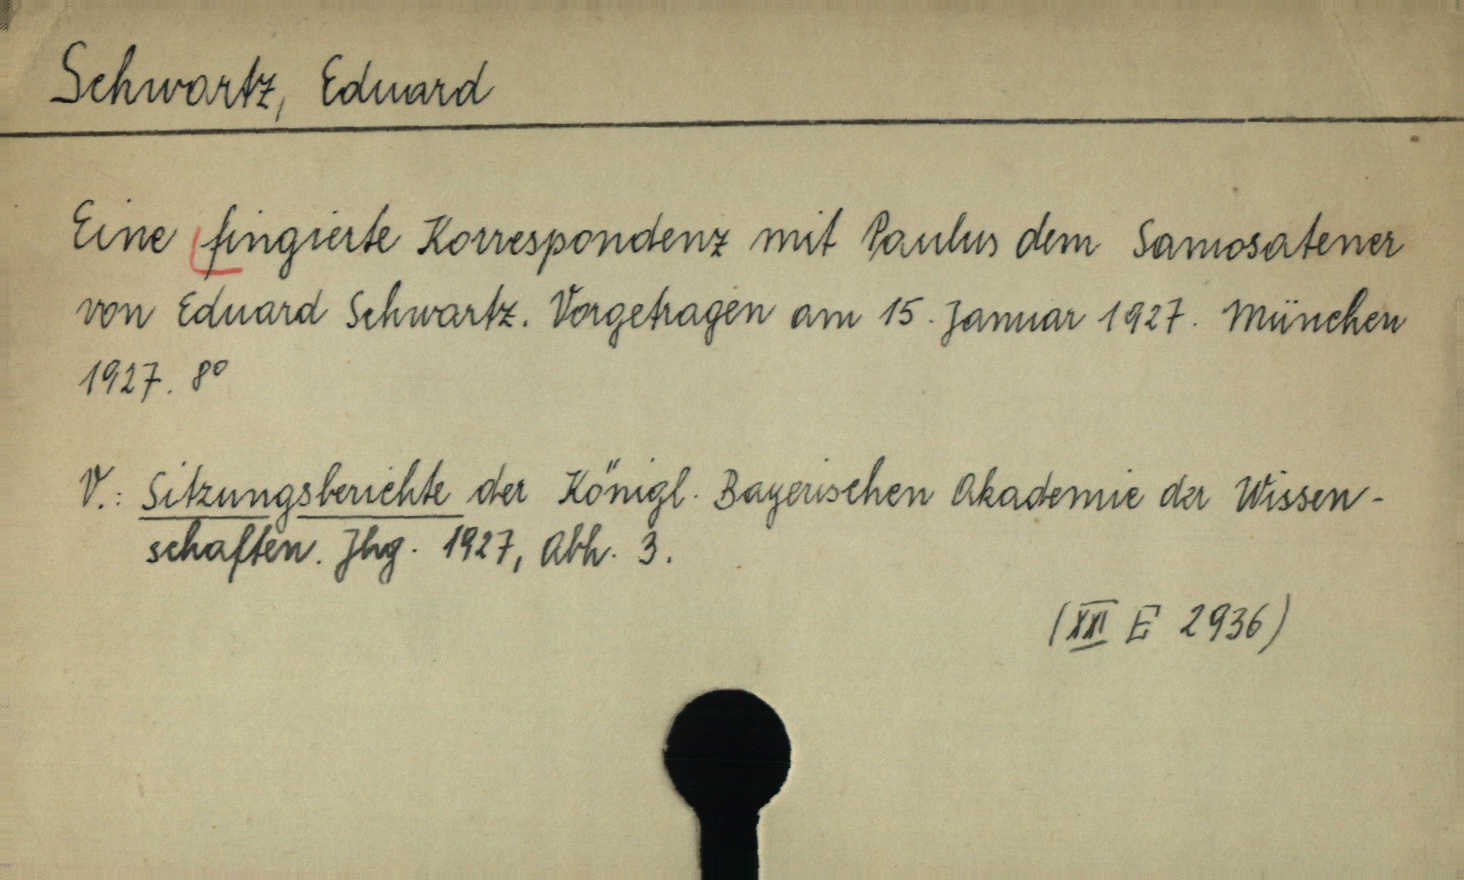 Schwartz, Eduard
Eine fingierte Korrespondenz mit Paulus dem Samosatener
von Eduard Schwartz. Vorgetragen am 15. Januar 1927. München
1927. 8°
V.: Sitzungsberichte der Königl. Bayerischen Akademie der Wissen-
schaften. Jhg. 1927, Abh. 3.
(XXI E 2936)